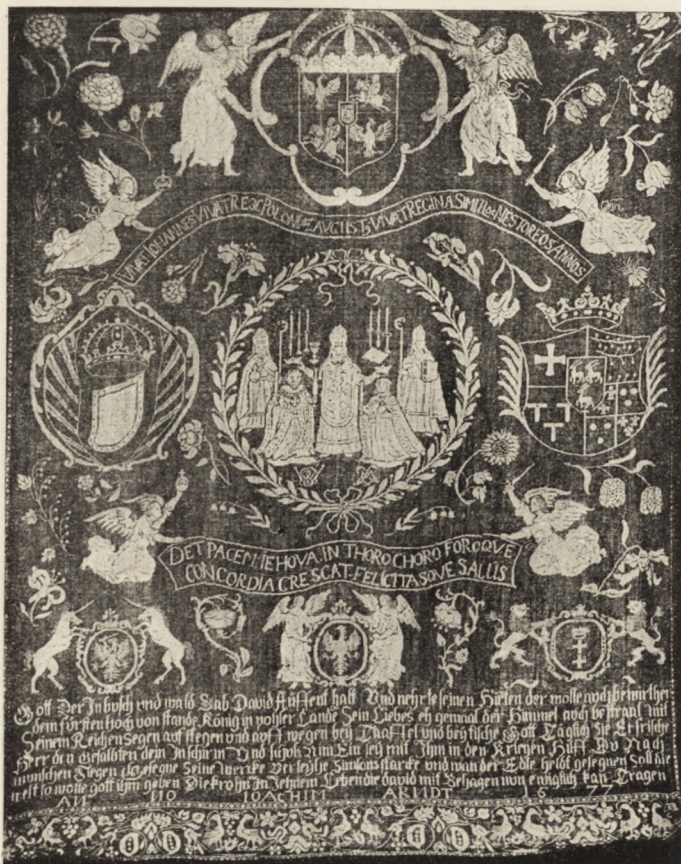 VIVAT IOHANNES VIVAT REX POLONIÆ AUGUST, VIVAT REGINA SIMUL NESTOREOS ANNOS
DET PACEM IEHOVA IN THORO CHORO FOROQVE
CONCORDIA CRESCAT FELICITASQVE SALUS
Gott Der In busch vnd wald Gab David auffent halt Vnd nehrte seinen Hirten Der wolle auch bewirthen
dem fürsten hoch von stande König in Lande Sein Liebes eh gemal der Himmel auch bestral mit
Seinem Reichen Segen auf stegen und auff wegen bey Taaffel und Gott Täglich Sie Erfrische
Herr den gesalbten dein In schirm Vnd schoß Nim Ein Zeig mit Ihm in den Kriegen Hilff Nach
wunschen Siegen gesegne Seine wercke Verleyhe Simsons stärcke vnd wan der Edle heldt gelegnen Soll die
welt so wolle gott ihm geben Die krohn Jehnem Leben die david mit Behagen nun ewiglich kan Tragen
AN IOACHIM ARNDT 1677